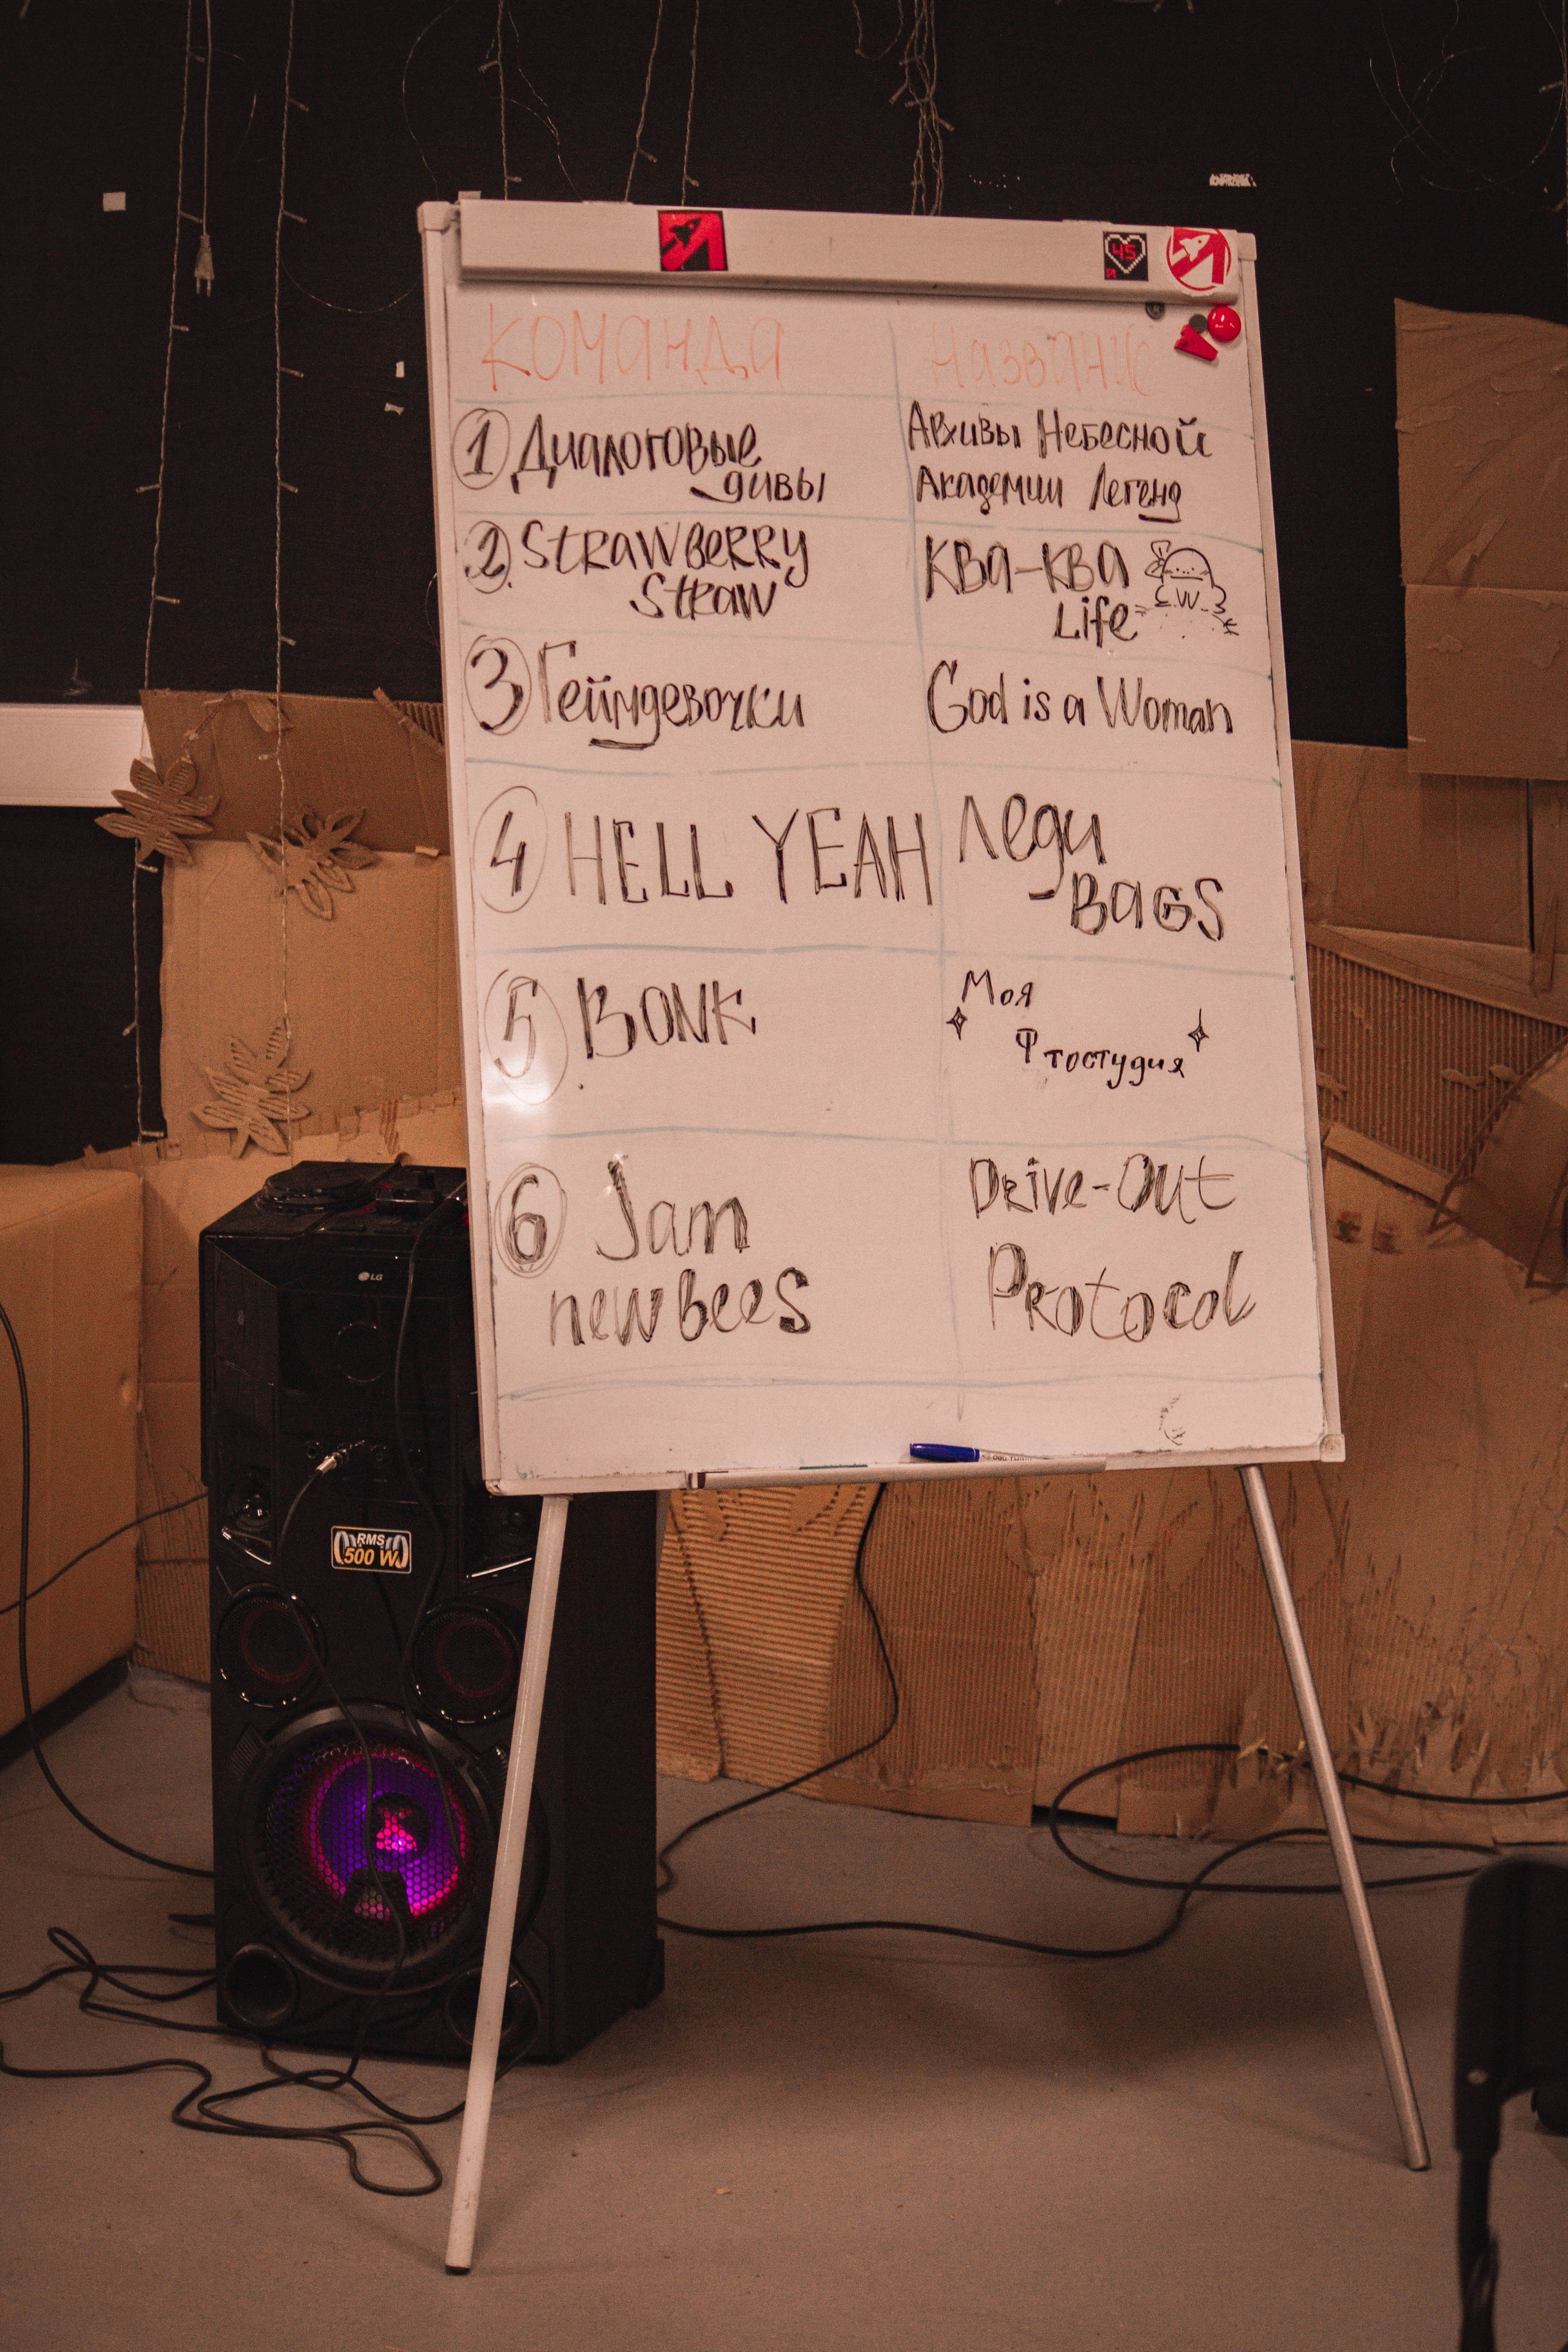 45
Команда
Название
1 Диалоговые
дивы
Архивы Небесной
Академии Легенд
2. Strawberry
Straw
Ква-ква
Life
3 Геймдевочки
God is a Woman
4 HELL YEAH
Леди
-BAGS
5 BONK
Моя
Фтостудия
6 Jam
newbees
Drive-Out
Protocol
LG
RMS
500 W